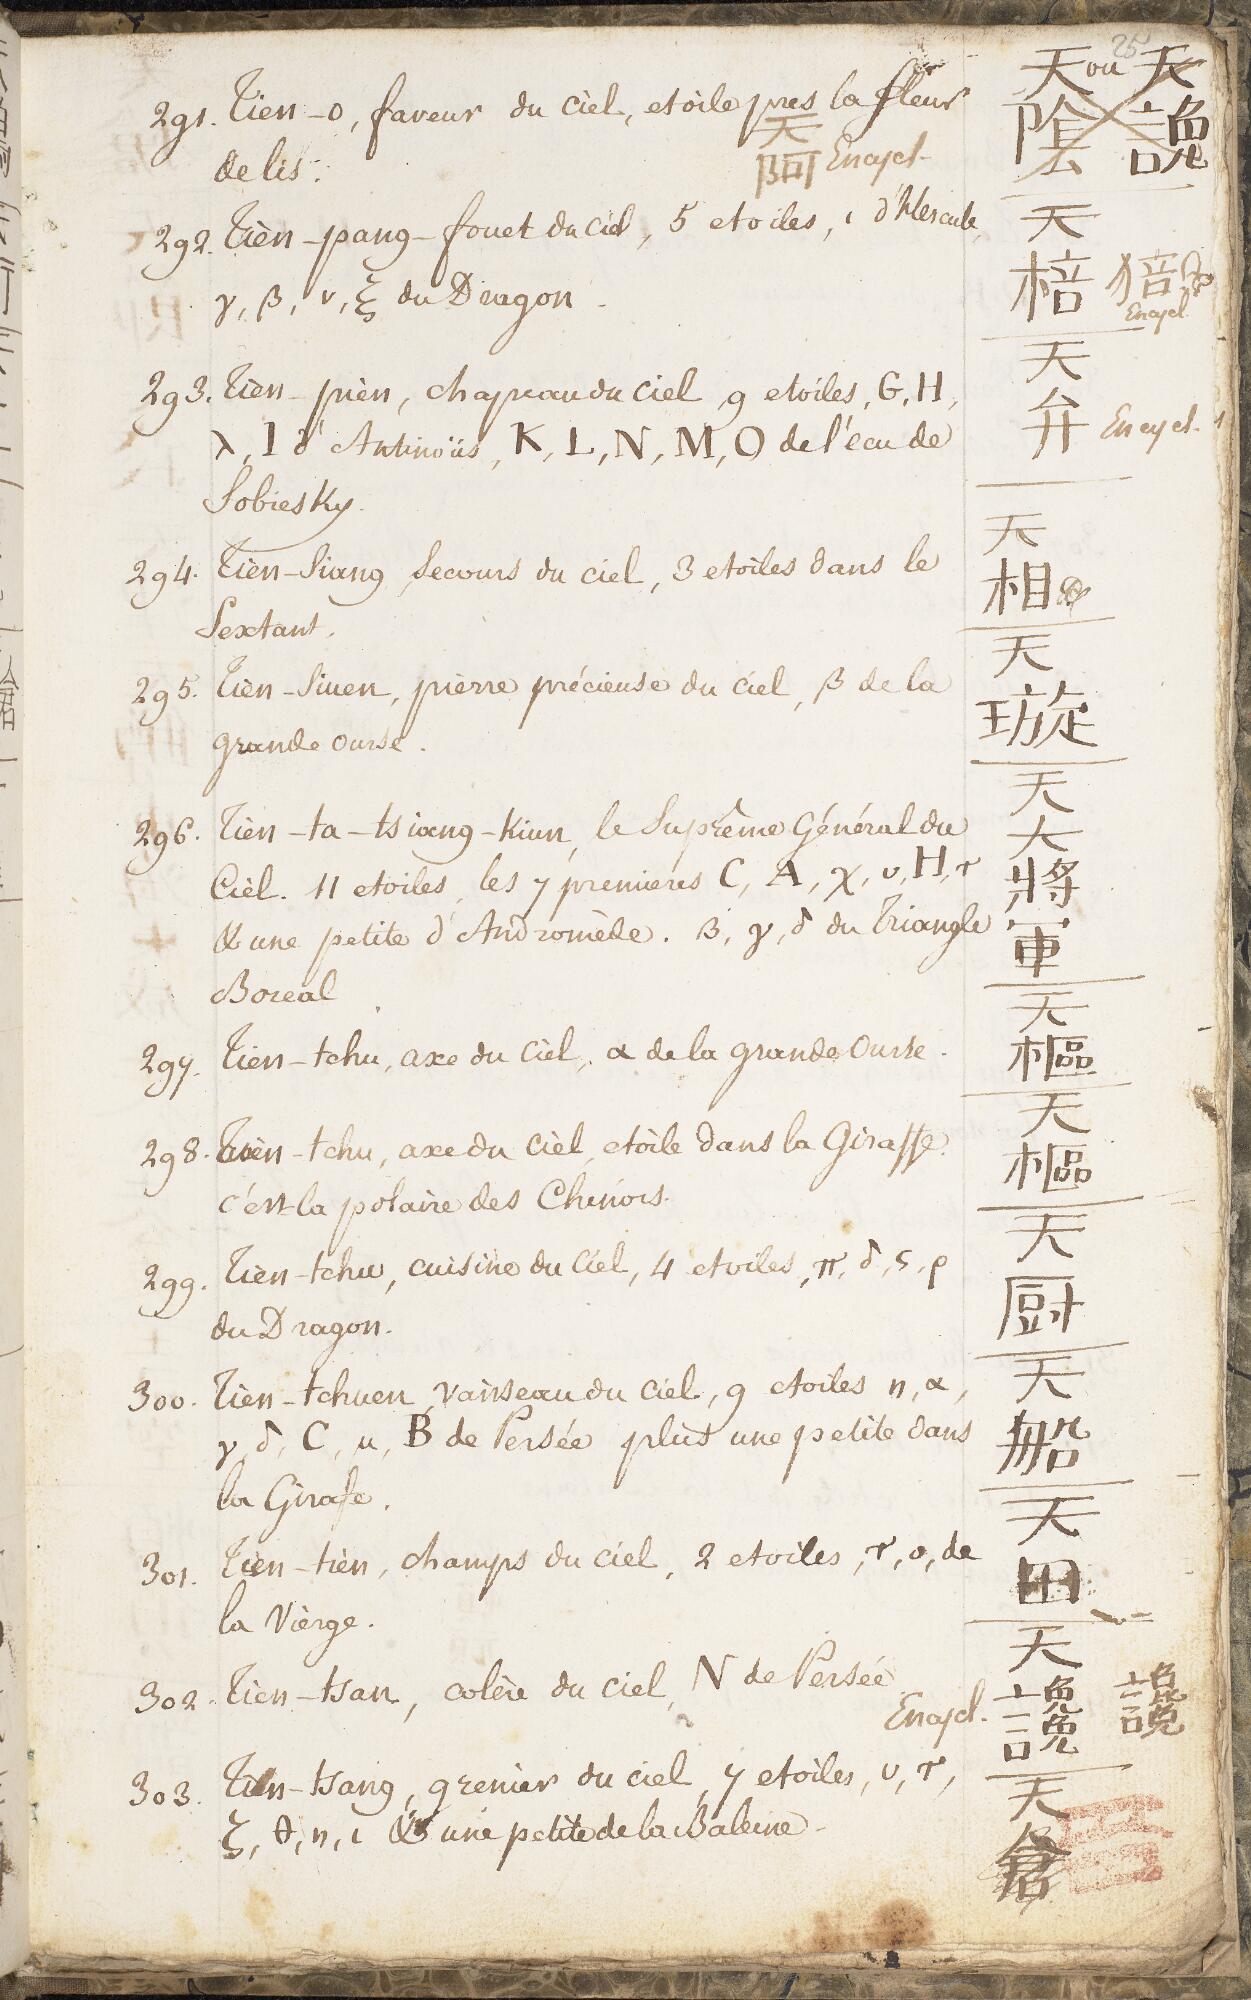 25
291. Tien-o, faveur du ciel, etoile pres la fleur
de lis.
天阿 Encycl.
天陰 ou 天讒
292. Tièn-pang-fouet du ciel, 5 etoiles, ι d'Hercule,
γ, β, ν, ξ du Dragon.
天棓
Encycl.
293. Tièn-pièn, chapeau du ciel, 9 etoiles, G, H,
λ, I d'Antinoüs, K, L, N, M, O de l'écu de
Sobiesky.
天弁 Encycl.
294. Tièn-Siang, Secours du ciel, 3 etoiles dans le
Sextant.
天相
295. Tièn-Siuen, pièrre précieuse du ciel, β de la
grande ourse.
天璇
296. Tièn-ta-tsiang-Kiun, le Suprême Général du
Cièl. 11 etoiles, les 7 premieres C, A, χ, υ, H, τ
& une petite d'Andromède. β, γ, δ du Triangle
Boreal
天大將軍
297. Tien-tchu, axe du ciel, α de la grande Ourse.
天樞
298. Tièn-tchu, axe du cièl, etoile dans la Giraffe.
c'est la polaire des Chinois.
天樞
299. Tièn-tchu, cuisine du Ciel, 4 etoiles, π, δ, ς, ρ
du Dragon.
天厨
300. Tièn-tchuen, vaisseau du ciel, 9 etoiles η, α,
γ, δ, C, μ, B de Persée plus une petite dans
la Girafe.
天船
301. Tien-tièn, champs du ciel, 2 etoiles, τ, σ, de
la Vièrge.
天田
302. Tien-tsan, colère du ciel, N de Persée
Encycl.
天讒 讒
303. Tien-tsang, grenier du ciel, 7 etoiles, υ, τ,
ζ, θ, η, ι & une petite de la Baleine.
天倉